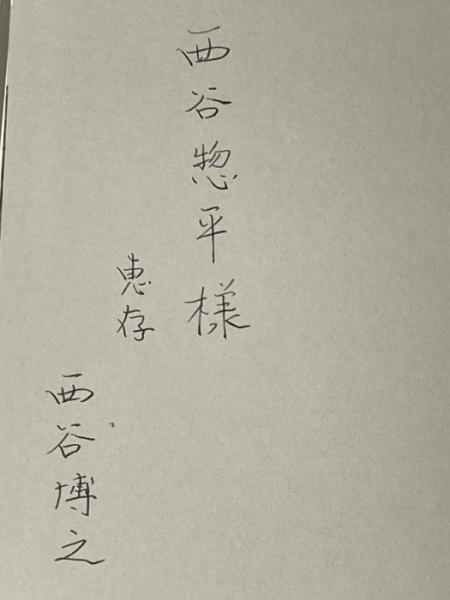 西谷惣平様
恵存
西谷博之